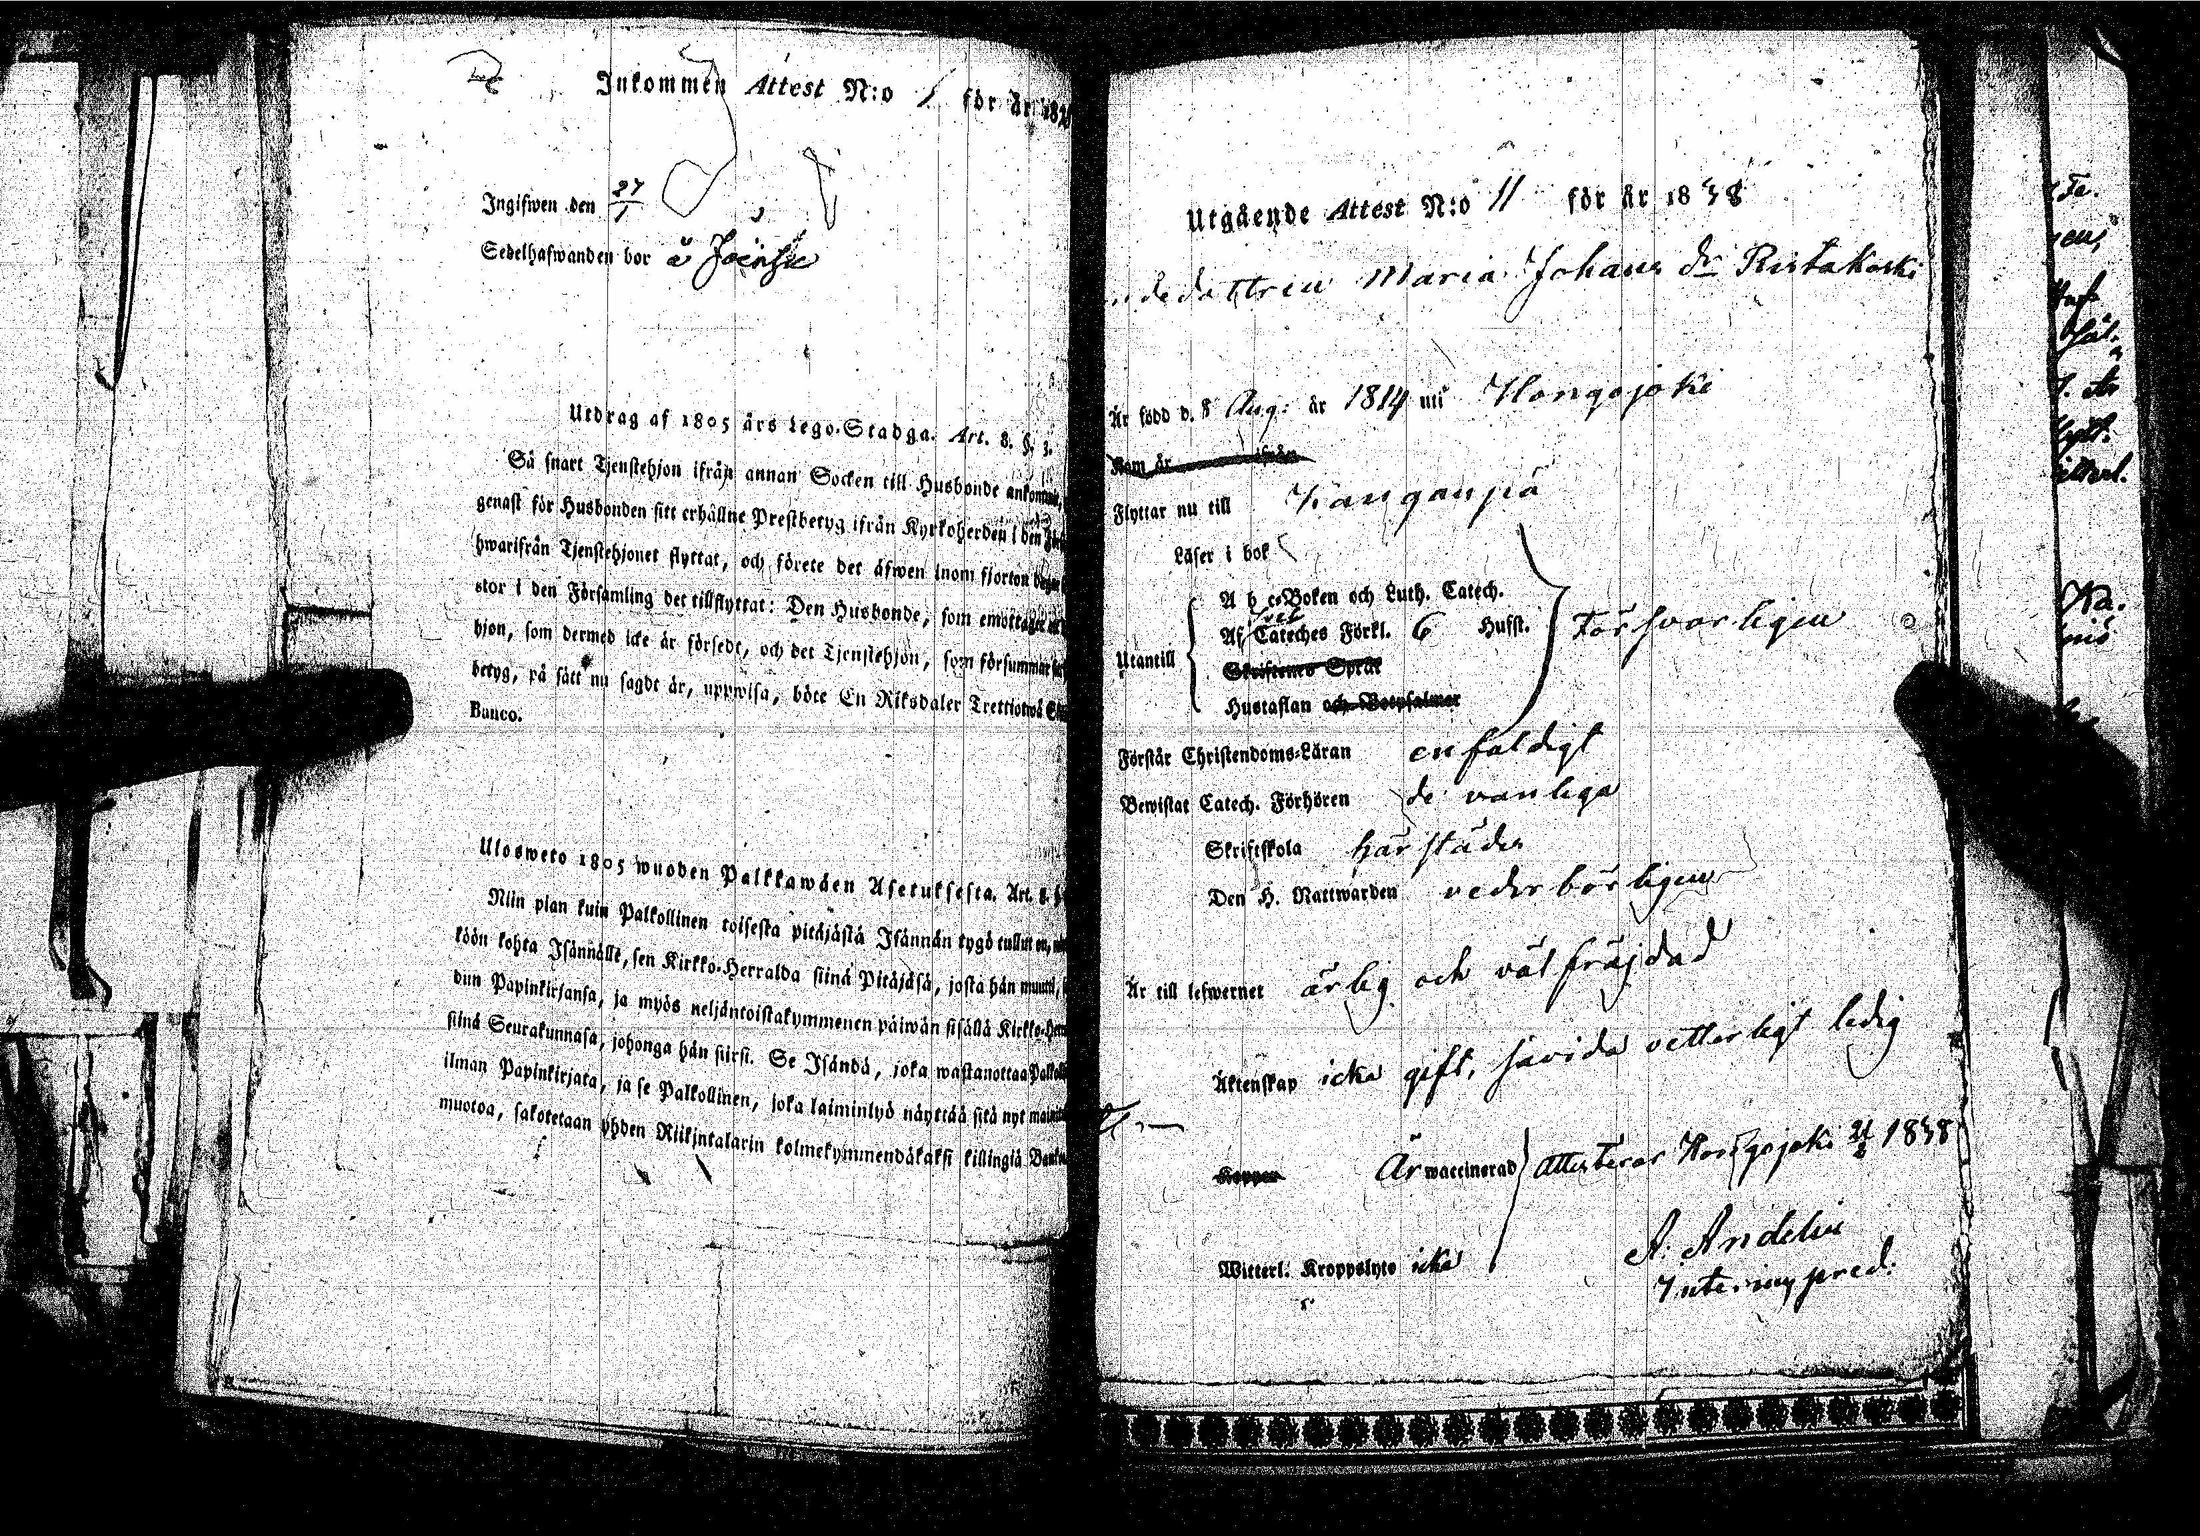 Inkommen Attest N:o 1 för år 182
Ingifwen den 27/1
Sedelhafwanden bor å
Utdrag af 1805 års Lego-Stadga. Art. 8. §. 3.
Så snart Tjenstehjon ifrån annan Socken till Husbonde ankommit,
genast för Husbonden sitt erhållne Prestbetyg ifrån Kyrkoherden i den
hwarifrån Tjenstehjonet flyttat, och förete det äfwen inom fjorton dagar
stor i den Församling det tillflyttat: Den Husbonde, som emottager
hjon, som dermed icke är försedt, och det Tjenstehjon, som försummar
betyg, på sätt nu sagdt är, uppwisa, böte En Riksdaler Trettiotwå
Banco.
Ulosweto 1805 wuoden Palkkawäen Asetuksesta. Art. 8. §
Niin pian kuin Palkollinen toisesta pitäjästä Isännän tygö tullut on,
köön kohta Isännälle, sen Kirkko-Herralda siinä Pitäjäsä, josta hän muutti,
dun Papinkirjansa, ja myös neljäntoistakymmenen päiwän sisällä Kirkko-
siinä Seurakunnasa, johonga hän siirsi. Se Isändä, joka wastanottaa
ilman Papinkirjata, ja se Palkollinen, joka laiminlyö näyttää sitä nyt
muotoa, sakotetaan yhden Riikintalarin kolmekymmendäkaksi killingiä
Utgående Attest N:o 11 för år 1838
Maria Johans dr
Är född d. 8 Aug: år 1814 uti Hongojoki
Kom år ifrån
Flyttar nu till Kangonpä
Läser i bok
A b c-Boken och Luth. Catech.
Af Sveb Cateches Förkl. 6 Hufst. Försvarligen
Utantill
Skriftenes Språk
Hustaflan och Botpsalmer
Förstår Christendoms-Läran enfaldigt
Bewistat Catech. Förhören de vanliga
Skriftskola härstädes
Den H. Nattwarden vederbörligen
Är till lefwernet ärlig och välfräjdad
Äktenskap icke gift, såvida vetterligt ledig
Koppor Är waccinerad attesterar Hongojoki 1838
A. Andelin
Witterl. Kroppslyte icke
Interims pred.